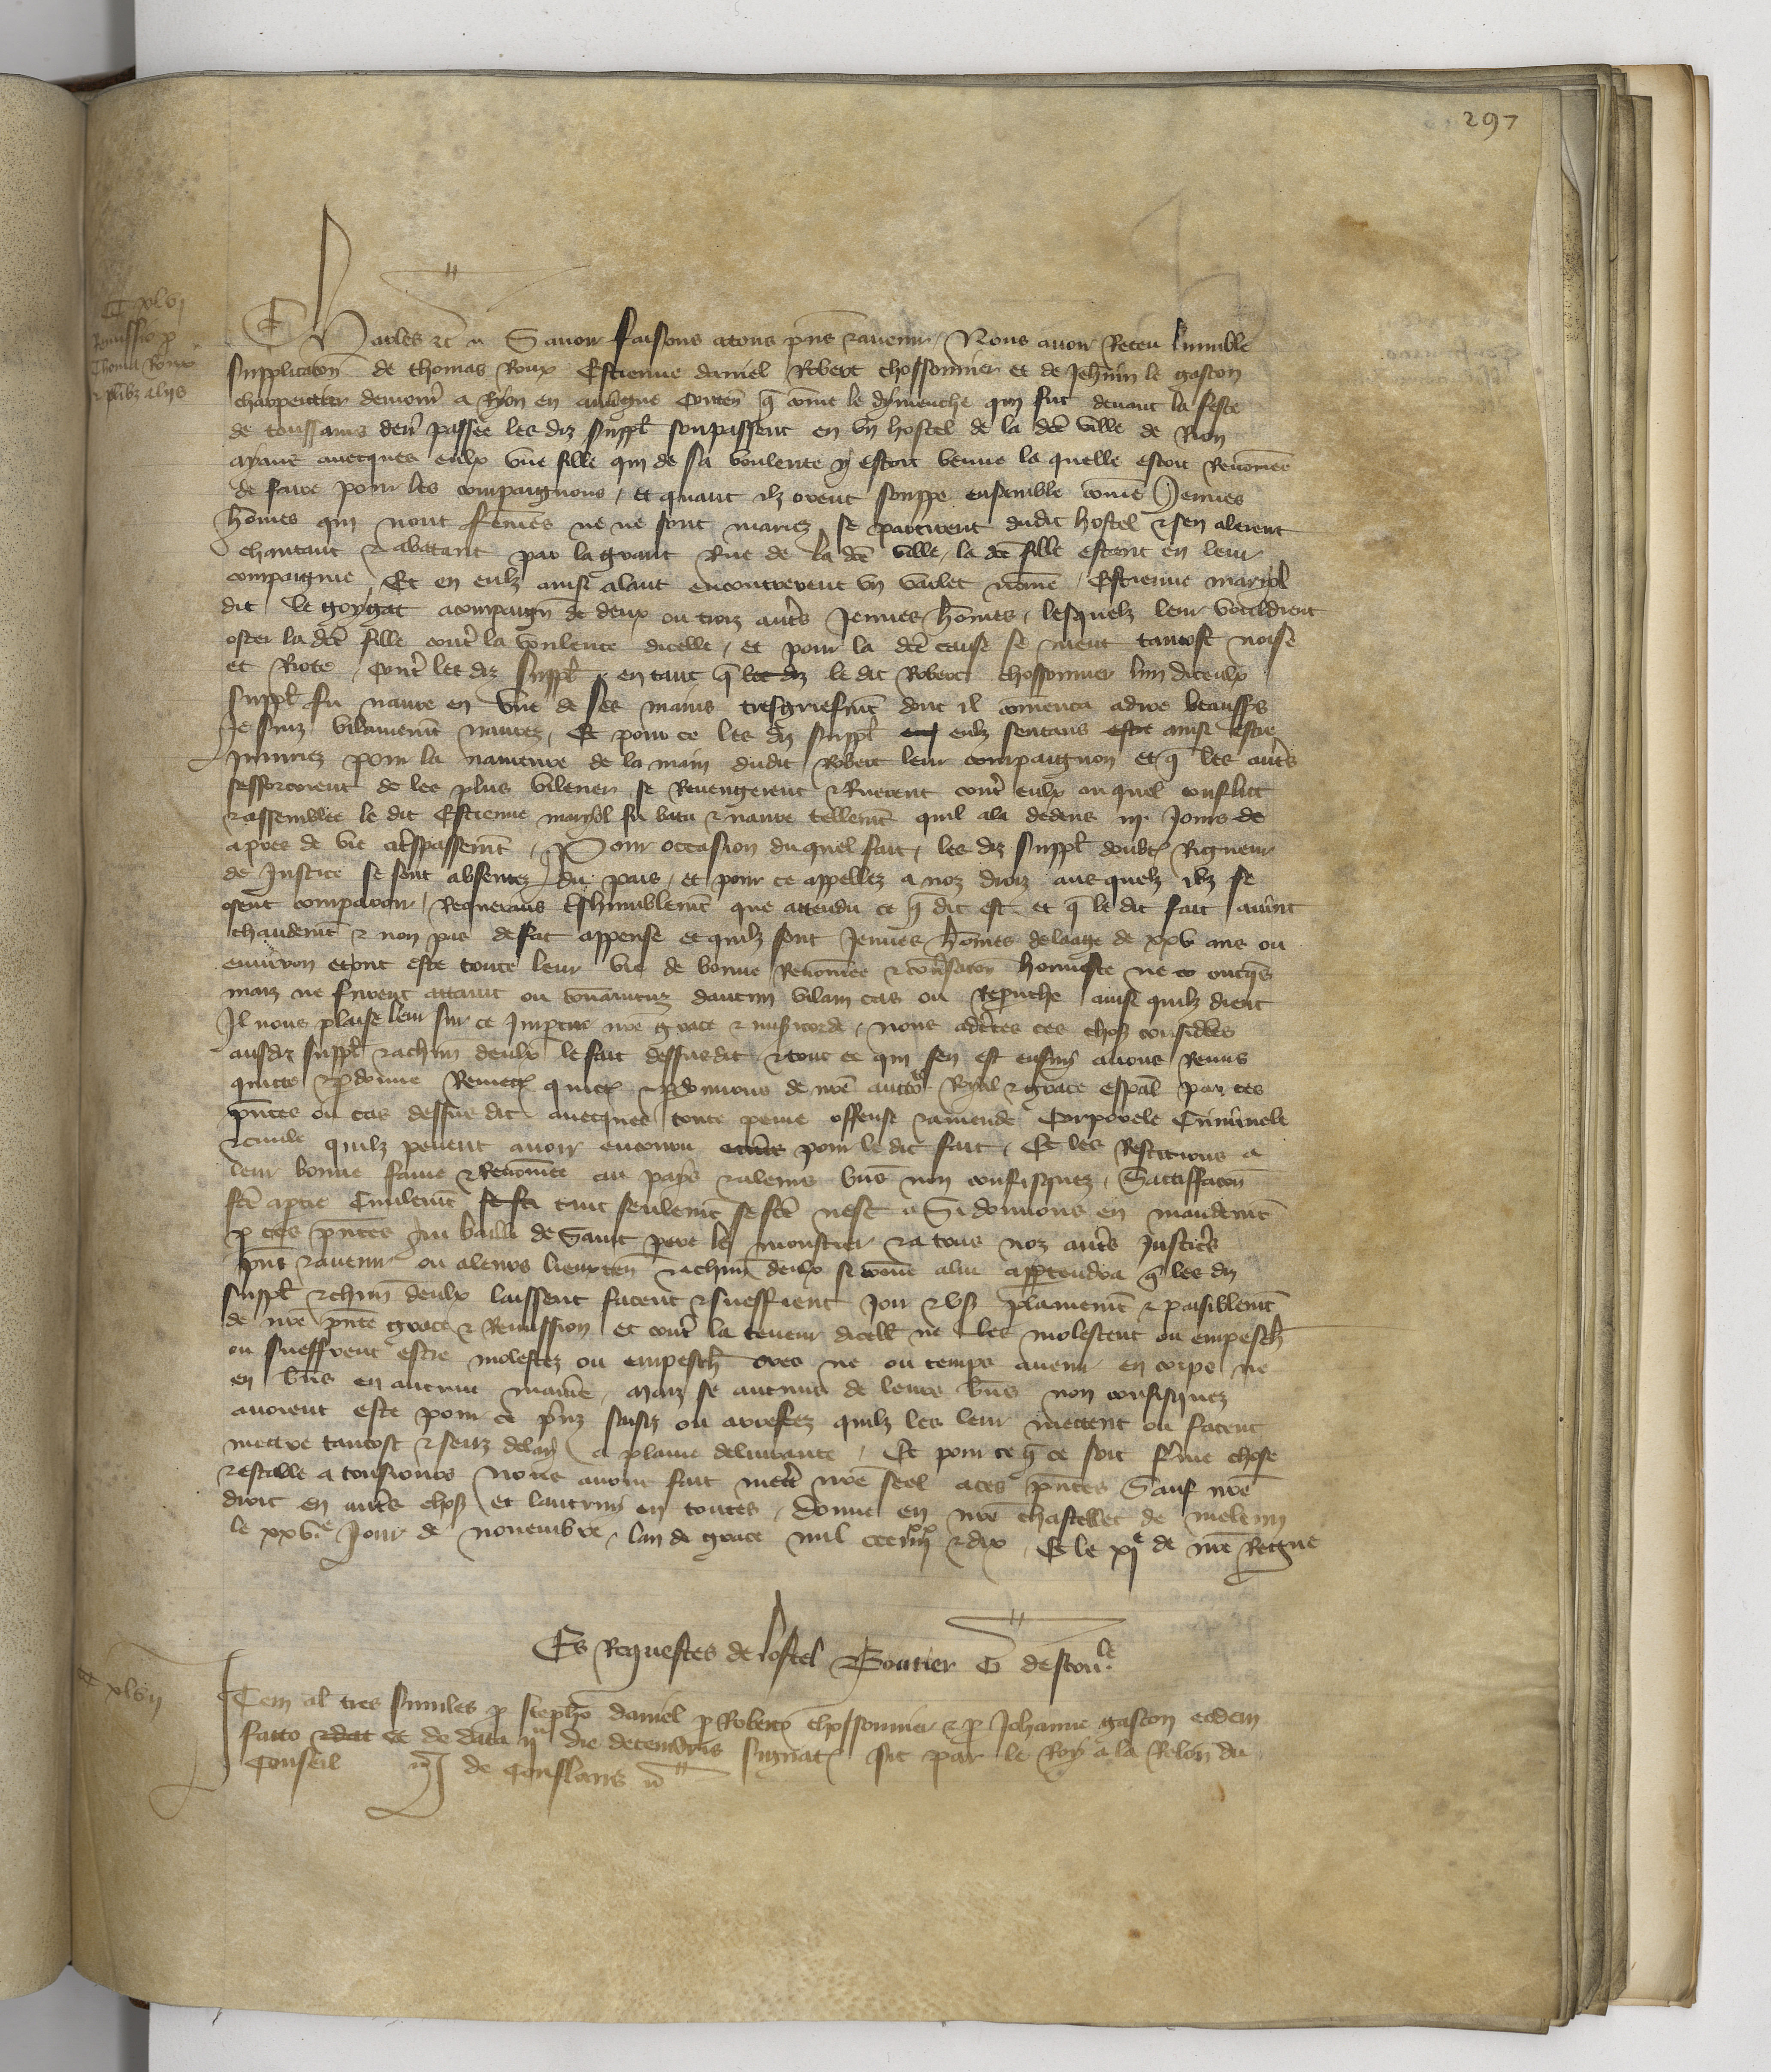 297
CC xlvj
Remissio p
Thoma Roux
& plibz alijs
Charles &c Savoir faisons a tous pns & avenir Nous avoir Receu lumble
supplicacon de thomas Roux Estienne daniel Robert chossonnier et de Jehanin le gascon
charpentier demour a Ryon en auvergne conten q come le dymenche qui fut devant la feste
de toussains derr passee les diz suppl soupassent en un hostel de la dce ville de Rion
ayans avecques eulx une fille qui de sa voulente y estoit venue la quelle estoit Renomee
de faire pour les compaignons / et quant ilz orent souppe ensemble come Jeunes
homes qui nont femes ne ne sont mariez se partirent dudit hostel & sen alerent
chantant & abatant par la grant Rue de la dce ville / la dce fille estant en leur
compaignie / Et en eulz ainsi alant encontrerent un varlet nome / Estienne maryol
dit le goygat acompaign de deux ou trois autrs Jeunes homes / lesquelz leur vouldrent
oster la dce fille contr la voulente dicelle / et pour la dce cause se meut tantost noise
et Riote / contr les diz suppl / en tant q les diz le dit Robert chossonnier lun diceulx
suppl fu navre en une de ses mains tresgriefmt dont il comenca a dire beaussrs
Je suiz vilainemt navrez / Et pour ce les diz suppl eulz sentans estre ainsi estre
Jniuriez pour la navreure de la main dudit Robert leur compaignon et q les autrs
sefforcoient de les plus vilener se Revengerent & Ruerent contr eulx ou quel conflict
& assemblee le dit Estienne maryol fu batu & navre tellemt quil ala dedens iij Jours de
apres de vie a trespassemt / Pour occasion duquel fait / les diz suppl doubt Rigueur
de Justice se sont absentez du pais / et pour ce appellez a noz droiz aus quelz ilz se
osent comparoir / Requerans treshumblemt que attendu ce q dit est et q le dit fait avint
chaudemt & non pas de fait appense et quilz sont Jeunes homes de laage de xxv ans ou
environ et ont este toute leur vie de bonne Renomee & conversacon honneste ne onques
maiz ne furent attains ou convaincuz dautrun vilain cas ou Reprouche ainsi quilz dient
Il nous plaise leur sur ce Impartir nre grace & misericorde / nous adcertes ces chosz considrees
ausdiz suppl & a chun deulx le fait dessusdit & tout ce qui sen est ensuy avons Remis
quitte & pdonne Remect quict & pdonnons de nre auctorite Royal & grace espal par ces
pntes ou cas dessus dit avecques toute peine offense & amende Corporele Criminele
& civile quilz pevent avoir encouru pour le dit fait / Et les Restituons a
leur bonne fame & Renomee au pays & a leurs bns non confisquez / Satisffacon
fce a ptie Civilemt tant seulemt se fce nest Si donnons en mandemt
p ces pntes au bailli de Saint pere le monstier & a tous noz autrs Justicrs
pns & avenir ou a leurs lieuxten & a chun deulx si come a lui appartendra q les diz
suppl & chun deulx laissent facent & sueffrent Joir & usz plainemt & paisiblemt
de nre pnte grace & Remission et contr la teneur dicell ne les molestent ou empesch
ou sueffrent estre molestez ou empesch ores ne ou temps avenir en corps ne
en bns en autrune maniere / Maiz se autruns de leurs bns non confisquez
avoient este pour ce prinz saisiz ou arrestez quilz les leur mettent ou facent
mettre tantost & senz delay a plaine delivrance / Et pour ce q ce soit ferme chose
& estable a tousiours Nous avons fait mettr nre seel a ces pntes Sauf nre
droit en autrs chosz et lautruy en toutes / Donne en nre chastellet de meleun
le xxve Jour de novembre / lan de grace mil ccc iiijxx & dix / Et le xje de nre Regne
Es Requestes de lostel Gontier G destouvle
CC xlvij
Item al tres similes p stepho daniel p Roberto chossonnier & p Johanne gascon eodem
facto & dat de data ij die decembris signat sic par le Roy a la Relon du
Conseil J de Conflans